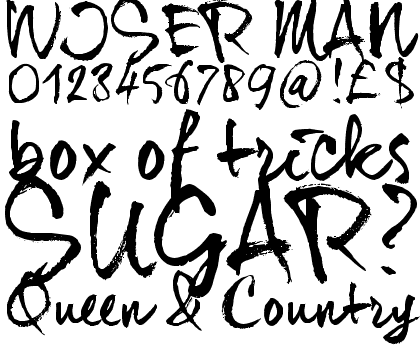 WOSER MAN
0123456789@!£$
box of tricks
SUGAR?
Queen & Country